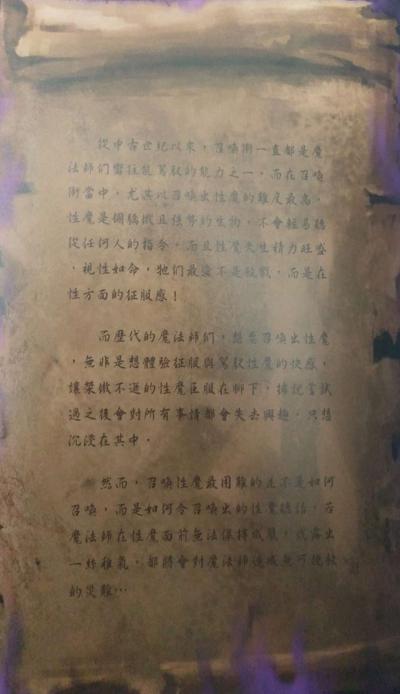 從中古世紀以來，召喚術一直都是魔
法師們嚮往能駕馭的能力之一，而在召喚
術當中，尤其以召喚出性魔的難度最高，
性魔是個驕傲且強勢的生物，不會輕易聽
從任何人的指令，而且性魔天生精力旺盛
，視性如命，牠們最愛不是殺戮，而是在
性方面的征服感！
而歷代的魔法師們，想要召喚出性魔
，無非是想體驗征服與駕馭性魔的快感，
讓桀傲不遜的性魔臣服在腳下，據說嘗試
過之後會對所有事情都會失去興趣，只想
沉浸在其中。
然而，召喚性魔最困難的並不是如何
召喚，而是如何令召喚出的性魔聽話，若
魔法師在性魔面前無法保持威嚴，或露出
一絲稚氣，都將會對魔法師造成無可挽救
的災難…